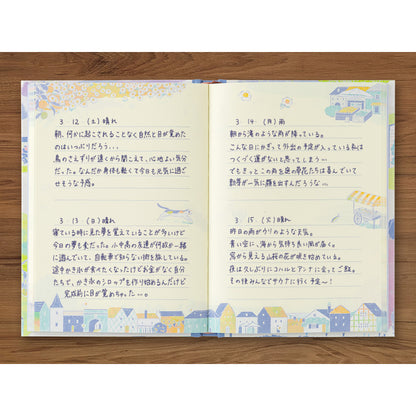 3 12 (土) 晴れ
朝、何かに起こされることなく自然と目が覚めた
のはいつぶりだろう...
鳥のさえずりが遠くから聞こえて、心地よい気分
だった。なんだか身体も軽くて今日も元気に過ご
せそうな予感。
3 13 (日) 晴れ
寝ている時に見た夢を覚えていることが多いけど
今日の夢も変だった。小中高の友達が何故か一緒
に遊んでいて、自転車で知らない街を旅している。
途中かき氷が食べたくなったけどお金がなく自分
たちで、かき氷のシロップを作り始めるんだけど
完成前に目が覚めちゃった…。
3 14 (月) 雨
朝から滝のような雨が降っている。
こんな日にかぎって外出の予定が入っている私は
つくづく運がないと思ってしまう…
でもきっとこの雨を庭の草花たちは喜んでいて
新芽が一気に顔を出すんだろうな…
3 15 (火) 晴れ
昨日の雨がウソのような天気。
青い空に、海から気持ち良い風が届く。
窓から見える山桜の花が咲き始めている。
夜は久しぶりにコハルとアンナに会ってご飯。
その後みんなでサウナに行く予定〜!